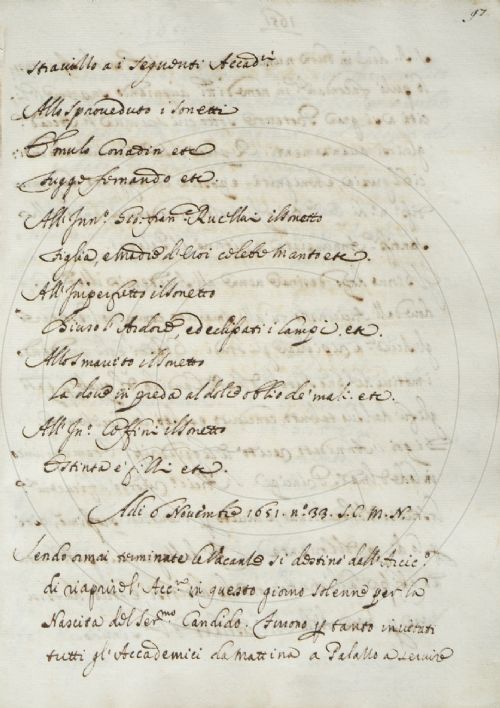 97
stravizzo a i seguenti Accad.ci
Allo Sproveduto i sonetti
Emulo Corradin etc
Fugge Fernando etc.
All' Inn.o Gio: Fran.o Rucellai il sonetto
Figlia, e madre d'Eroi celebre Manto etc.
All' Imperfetto il sonetto
l'Ardore, ed eclissati i lampi, etc.
Allo Smarrito il sonetto
La dole in preda al dolce oblio de' mali. etc.
All' In.o Coffini il sonetto
Estinta è Filli etc.
Adi 6 Novembre 1651. n.o 33. S. C. M. N.
Sendo ormai terminate le Vacanze si destinò dall' Arcic.o
di riaprire l' Acc.a in questo giorno solenne per la
Nascita del Ser.mo Candido. Furono per tanto invitati
tutti gl' Accademici la mattina a Palazzo a servire